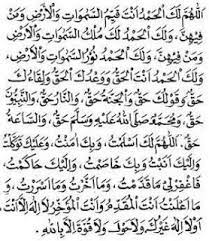 اَللّٰهُمَّ لَكَ الْحَمْدُ أَنْتَ قَيِّمُ السَّمٰوَاتِ وَالْأَرْضِ وَمَنْ
فِيْهِنَّ، وَلَكَ الْحَمْدُ لَكَ مُلْكُ السَّمٰوَاتِ وَالْأَرْضِ
وَمَنْ فِيْهِنَّ، وَلَكَ الْحَمْدُ نُوْرُ السَّمٰوَاتِ وَالْأَرْضِ،
وَلَكَ الْحَمْدُ أَنْتَ الْحَقُّ وَوَعْدُكَ الْحَقُّ وَلِقَاءُكَ
حَقٌّ وَقَوْلُكَ حَقٌّ، وَالْجَنَّةُ حَقٌّ، وَالنَّارُ حَقٌّ، وَالنَّبِيُّوْنَ
حَقٌّ، وَمُحَمَّدٌ صَلَّى اللهُ عَلَيْهِ وَسَلَّمَ حَقٌّ، وَالسَّاعَةُ
حَقٌّ، اَللّٰهُمَّ لَكَ أَسْلَمْتُ، وَبِكَ اٰمَنْتُ، وَعَلَيْكَ تَوَكَّلْتُ
وَإِلَيْكَ أَنَبْتُ وَبِكَ خَاصَمْتُ، وَإِلَيْكَ حَاكَمْتُ،
فَاغْفِرْلِيْ مَاقَدَّمْتُ، وَمَا أَخَّرْتُ وَمَا أَسْرَرْتُ، وَمَا
أَعْلَنْتُ أَنْتَ الْمُقَدِّمُ وَأَنْتَ الْمُؤَخِّرُ لَا إِلٰهَ إِلَّا أَنْتَ،
أَوْلَا إِلٰهَ غَيْرُكَ وَلَاحَوْلَ وَلَا قُوَّةَ إِلَّا بِاللهِ.